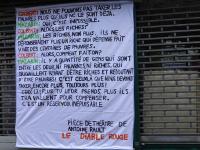 COLBERT: NOUS NE POUVONS PAS TAXER LES
PAUVRES PLUS QU'ILS NE LE SONT DÉJÀ.
MAZARIN: OUI C'EST IMPOSSIBLE.
COLBERT: ALORS LES RICHES?
MAZARIN: LES RICHES, NON PLUS, ILS NE
DÉPENSERAIENT PLUS. UN RICHE QUI DÉPENSE FAIT
VIVRE DES CENTAINES DE PAUVRES.
COLBERT: ALORS, COMMENT FAIT-ON?
MAZARIN: IL Y A QUANTITÉ DE GENS QUI SONT
ENTRE LES DEUX NI PAUVRES NI RICHES, QUI
TRAVAILLENT RÊVANT D'ÊTRE RICHES ET REDOUTANT
D'ÊTRE PAUVRES! C'EST CEUX LÀ QUE NOUS DEVONS
TAXER, ENCORE PLUS, TOUJOURS PLUS!
CEUX LÀ! PLUS TU LEUR PRENDS, PLUS ILS
TRAVAILLENT POUR COMPENSER.
C'EST UN RÉSERVOIR INÉPUISABLE
PIÈCE DE THÉÂTRE DE
ANTOINE RAULT
LE DIABLE ROUGE